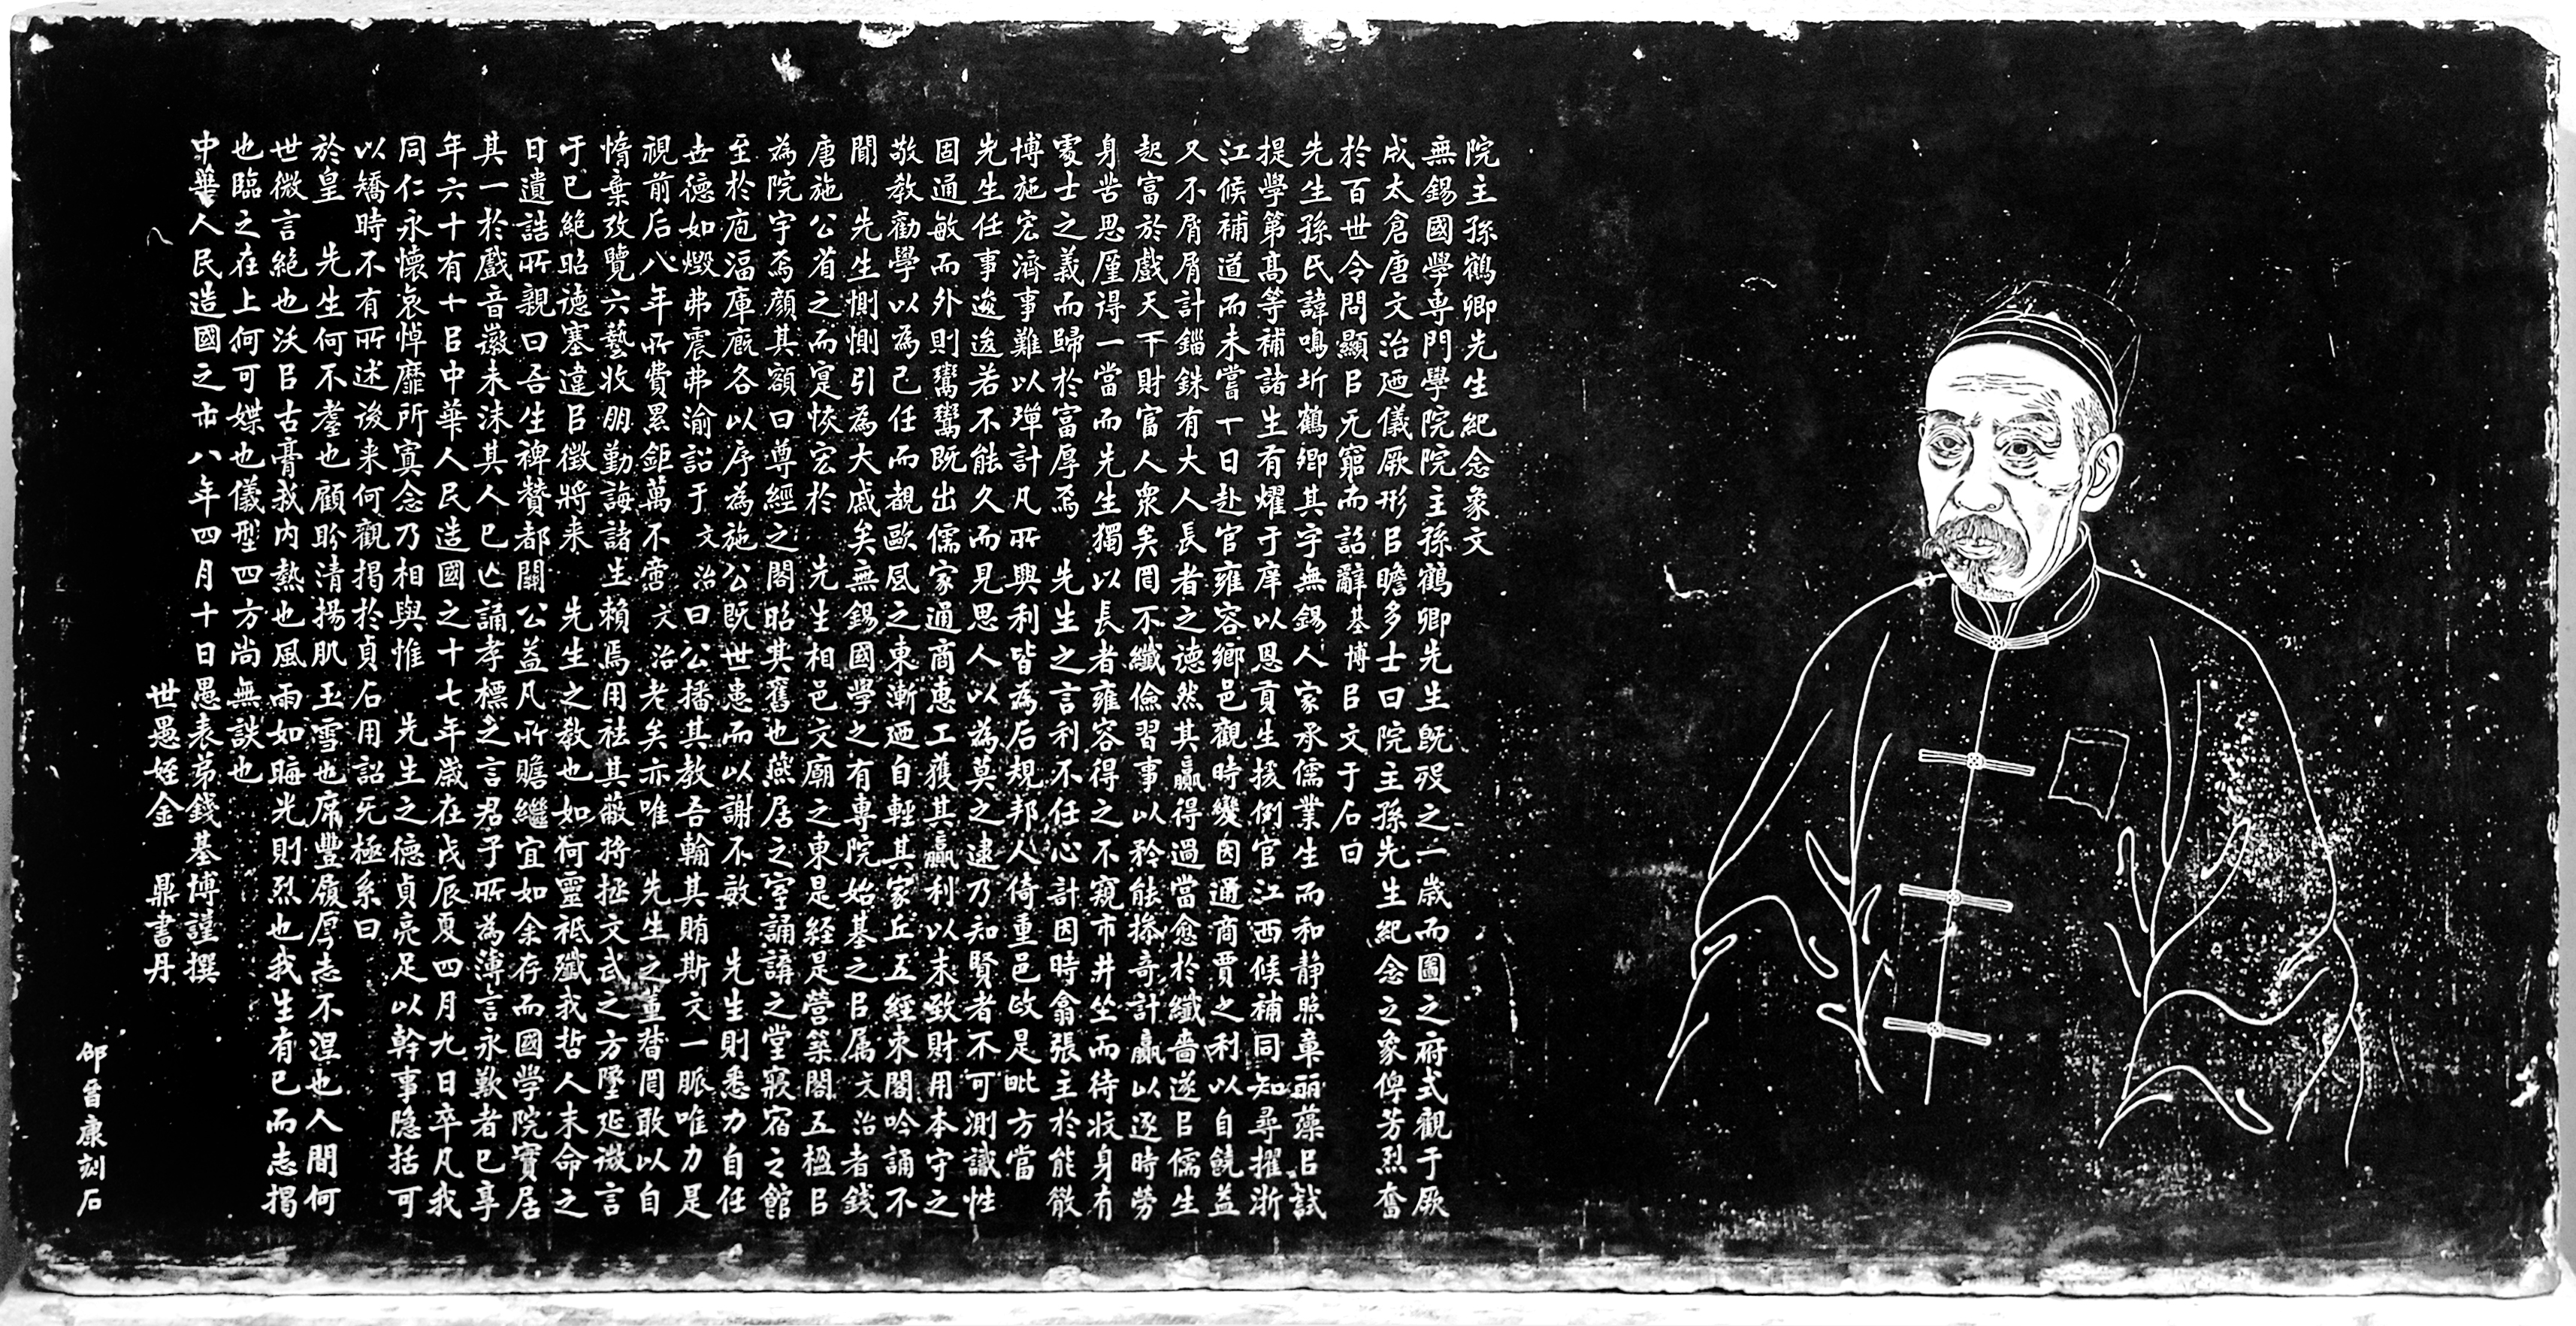 院主孫鶴卿先生紀念象文
無錫國學専門學院院主孫鶴卿先生既歿之一歲而圖之府式觀于厥
成太倉唐文治廼儀厥形㠯瞻多士曰院主孫先生紀念之象俾芳烈奮
於百世令問顯㠯无窮而詔辭基博㠯文于石曰
先生孫氏諱鳴圻鶴卿其字無錫人家承儒業生而和静照車丽藻㠯試
提學第高等補諸生有燿于庠以恩貢生援例官江西候補同知尋擢浙
江候補道而未嘗一日赴官雍容鄉邑觀時變因通商賈之利以自饒益
又不屑屑計錙銖有大人長者之德然其贏得過當愈於纖嗇遂㠯儒生
起富於戲天下財官人衆矣罔不纖儉習事以矜能搽奇計贏以逐時勞
身苦思廑得一當而先生獨以長者雍容得之不窺市井坐而待收身有
處士之義而歸於富厚焉　先生之言利不任心計因時翕張主於能散
博施宏濟事難以殫計凡所興利皆為后規邦人倚重邑政是毗方當
先生任事逡逡若不能久而見思人以為莫之逮乃知賢者不可測識性
固通敏而外則鸞鸞既出儒家通商惠工獲其贏利以末致財用本守之
敬教勸學以為己任而覩歐風之東漸廼自輕其家丘五經束閣吟誦不
聞　先生惻惻引為大戚矣無錫國學之有専院始基之㠯属文治者錢
唐施公省之而寔恢宏於　先生相邑文廟之東是経是營築閣五楹㠯
為院宇焉顏其額曰尊經之閣昭其舊也燕居之室誦講之堂寢宿之館
至於庖湢庫廐各以序為施公既世患而以謝不敏　先生則悉力自任
世德如燬弗震弗渝詔于文治曰公播其教吾輸其賄斯文一脈唯力是
視前后八年所費累鉅萬不啻文治老矣亦唯　先生之董督罔敢以自
惰棄攷覽六藝收朋勤誨諸生賴焉用祛其蔽将拯文武之方墜延微言
于已絕昭德塞違㠯徵將来　先生之教也如何靈祇殲我哲人末命之
日遺誥所親曰吾生裨贊都關公益凡所贍繼宜如余存而國學院實居
其一於戲音徽未沬其人已亾誦孝標之言君子所為溥言永歎者已享
年六十有十㠯中華人民造國之十七年歲在戊辰夏四月九日卒凡我
同仁永懷哀悼靡所寘念乃相與惟　先生之德貞亮足以幹事隐括可
以矯時不有所述後来何觀揭於貞石用詔无極系曰
於皇　先生何不耋也顧盼清揚肌玉雪也席豐履厚志不涅也人間何
世微言絕也沃㠯古膏我内熱也風雨如晦光則烈也我生有已而志揭
也臨之在上何可媟也儀型四方尚無諛也
中華人民造國之十八年四月十日愚表弟錢基博謹撰
世愚姪金　鼎書丹
邰晉康刻石